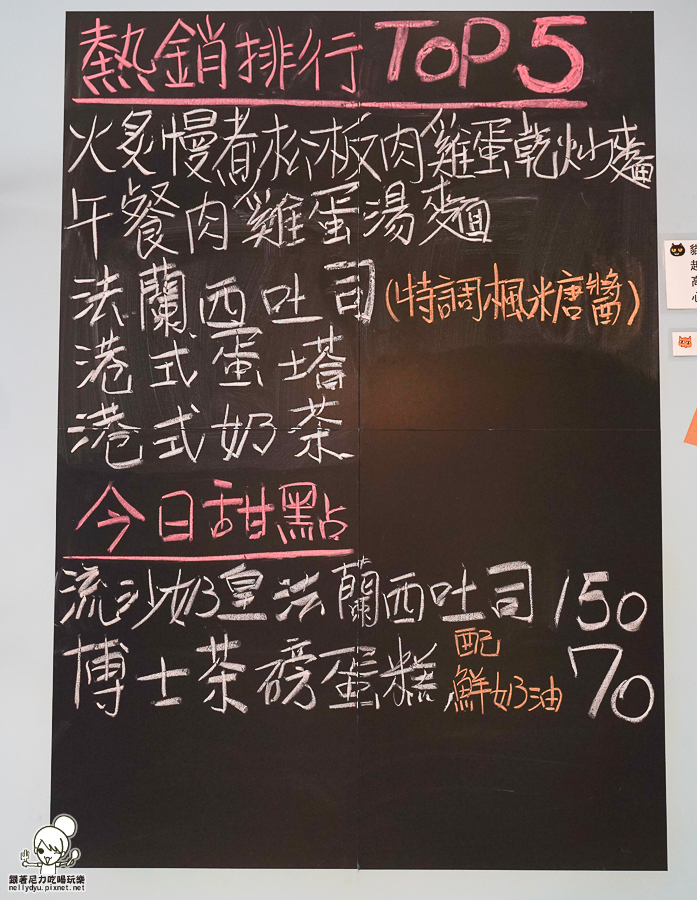 熱銷排行TOP5
火炙慢煮松板肉雞蛋乾炒麵
午餐肉雞蛋湯麵
法蘭西吐司(特調楓糖醬)
港式蛋塔
港式奶茶
今日甜點
流沙奶皇法蘭西吐司 150
博士茶磅蛋糕 配鮮奶油 70
跟著尼力吃喝玩樂
nellydyu.pixnet.net